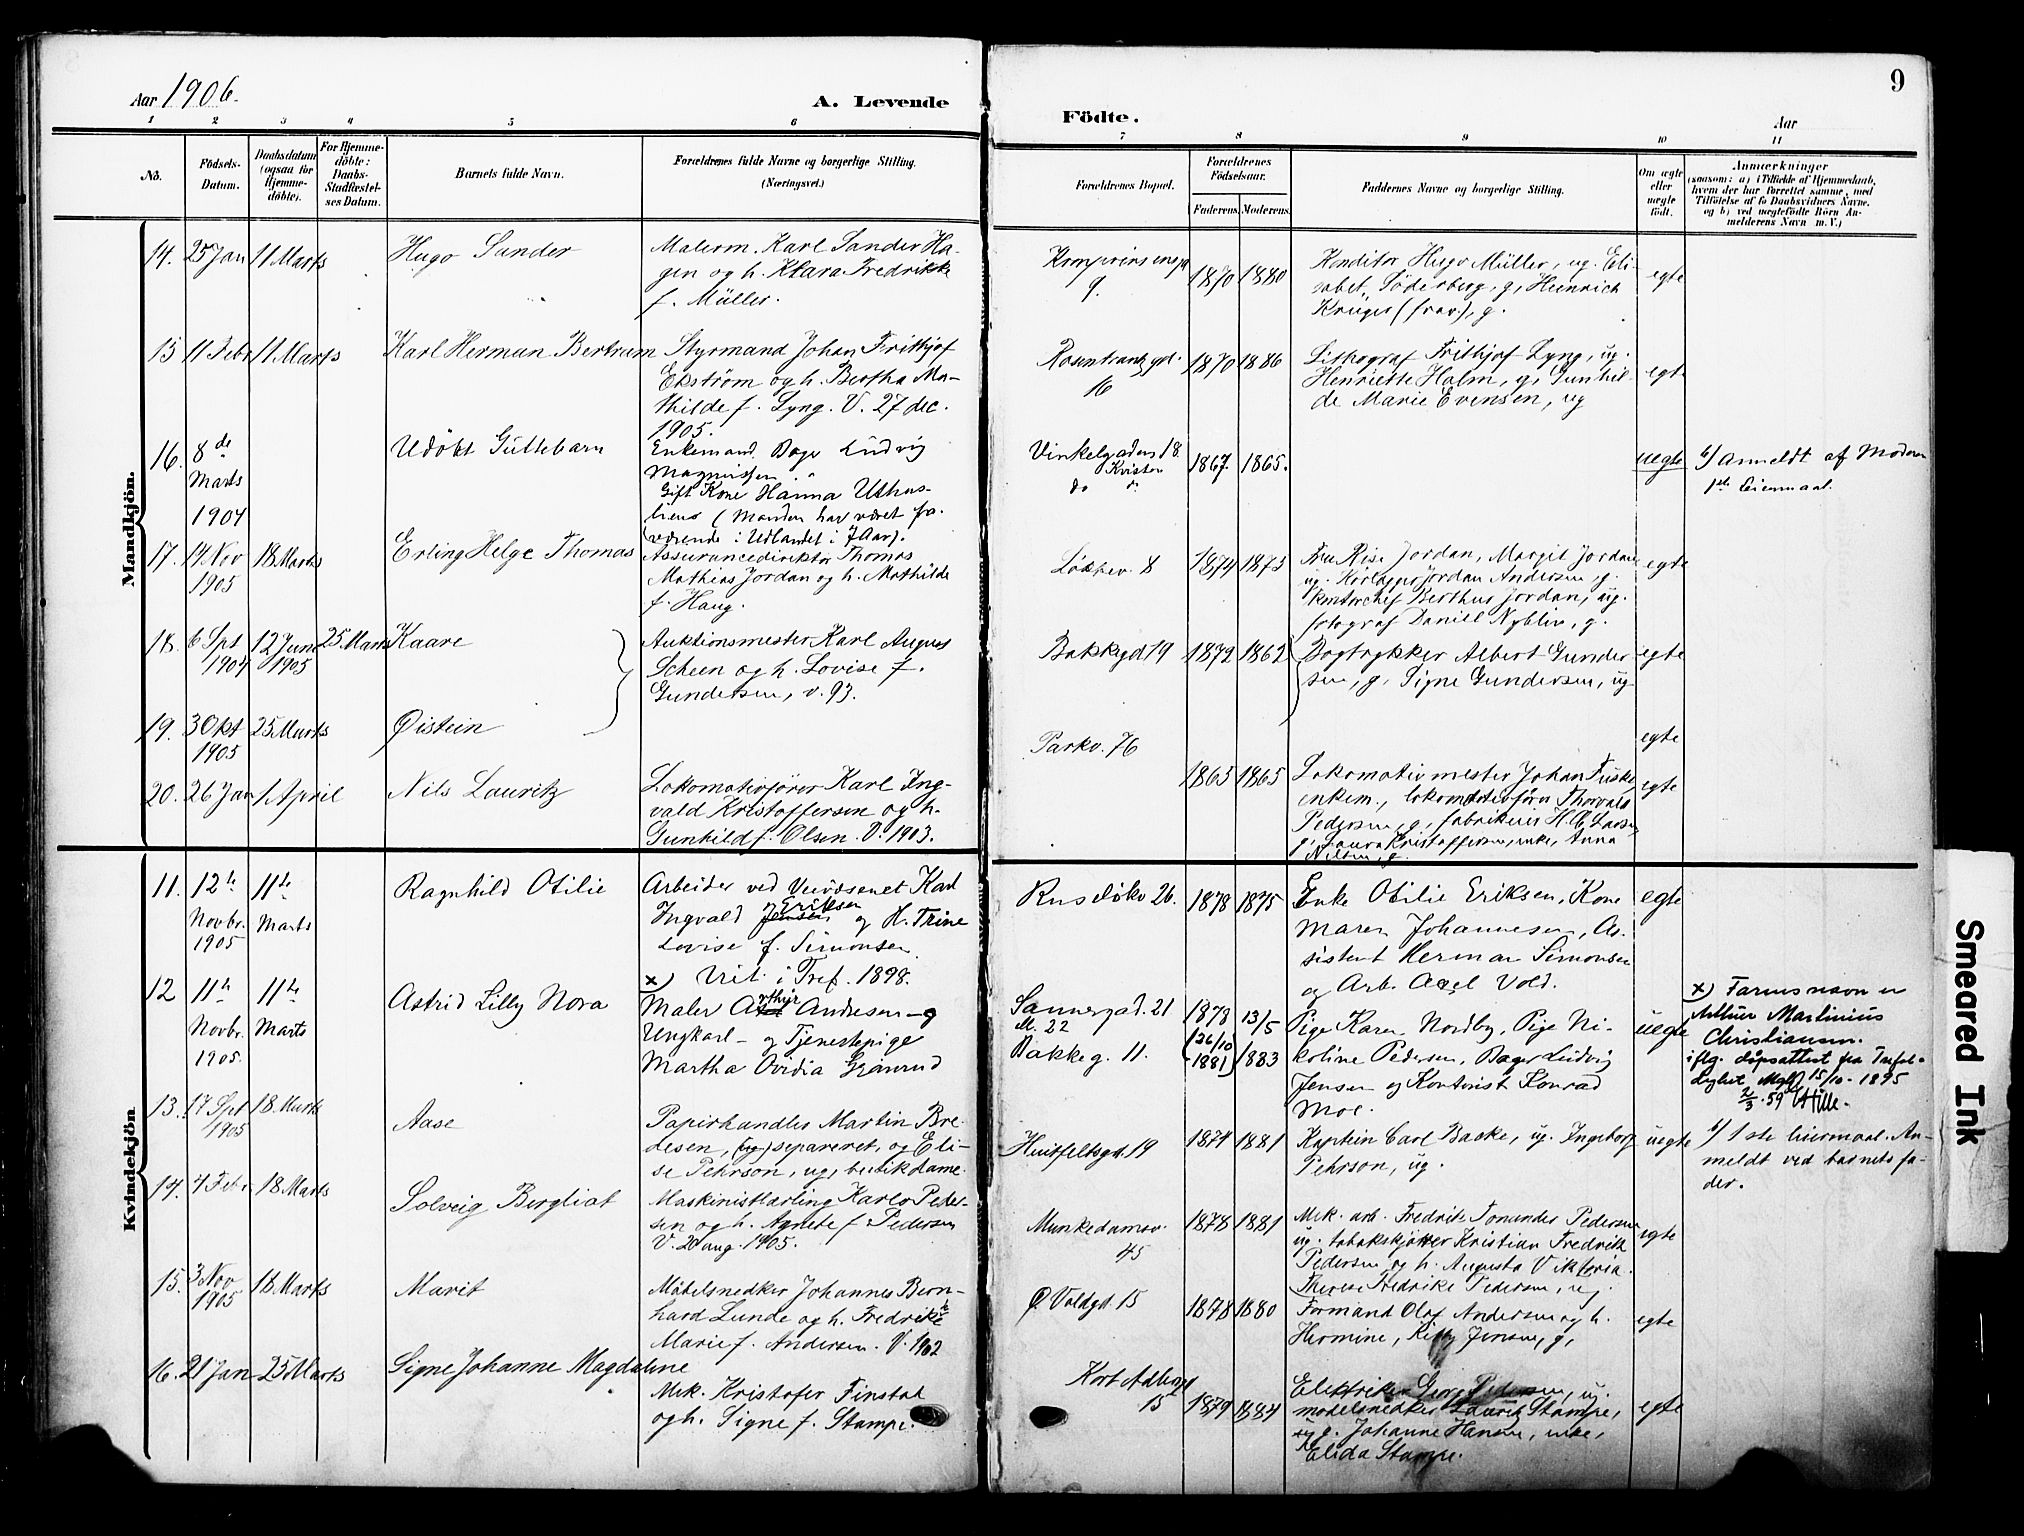 Aar 1906.
A. Levende
Födte.
Aar
9
1 2 3 4 5 6
7 8 9 10 11
No.
Födsels-Datum.
Daabsdatum (ogsaa for Hjemmedöbte).
For Hjemmedöbte: Daabs-Stadfæstelses Datum.
Barnets fulde Navn.
Forældrenes fulde Navne og borgerlige Stilling. (Næringsvei.)
Forældrenes Bopæl.
Forældrenes Födselsaar.
Faderens. Moderens.
Faddernes Navne og borgerlige Stilling.
Om ægte eller uægte födt.
Anmærkninger
(saasom: a) i Tilfælde af Hjemmedaab, hvem der har forrettet samme, med Tilföielse af to Daabsvidners Navne, og b) ved uægtefödte Börn Anmelderens Navn m. V.)
Mandkjön.
14. 25 Jan 11 Marts Hugo Sander
Malerm. Karl Sander Ha-
gen og h. Klara Fredrikke
f. Müller.
9. 1870 1880
Konditor Hugo Müller, ug. Eli-
sabet Söderberg, g, Heinrich
Krüger (frav), g.
egte
15 11 Febr 11 Marts Karl Herman Bertram
Styrmand Johan Frithjof
Ekström og h. Bertha Ma-
thilde f. Lyng. V. 27 dec.
1905.
Rosenkrantz gd.
16 1870 1886
Lithograf Frithjof Lyng, ug.
Henriette Holm, g, Gunhil-
de Marie Evensen, ug
egte
16. 8de Marts 1904 Udöbt Guttebarn
Enkemand Bager Ludvig
Magnussen
Gift Kone Hanna Uthus-
liens (Manden har været fra-
værende i Udlandet i 7 Aar).
Vinkelgaden 18.
do
1867. 1865.
uegte
b) Anmeldt af Moderen
1ste Leiermaal.
17. 14 Nov 1905 18 Marts Erling Helge Thomas
Assurancedirektör Thomas
Mathias Jordan og h. Mathilde
f. Haug.
Lökkev. 8 1874 1873
Jordan, Margit Jordan
ug. Jordan Andersen, g.
Kontorchef Berthus Jordan, ug.
fotograf Daniel Nyblin, g.
egte
18. 6 Spt 1904 12 Juni 1905 25 Marts Kaare
Auktionsmester Karl August
Scheen og h. Lovise f.
Gundersen, v. 93.
Bakkegd 19 1872 1862
Bogtrykker Albert Gunder-
sen, g, Signe Gundersen, ug
egte
19. 3 Okt 1905 25 Marts Øistein
Parkv. 76
egte
20. 26 Jan 1 April Nils Lauritz
Lokomotivförer Karl Ing-
vald Kristoffersen og h.
Gunhild f. Olsen. V. 1903.
1865 1865
Lokomotivmester Johan Fuske,
enkem., lokomotivförer Thorvald
Pedersen, g, fabrikeier H. C. Larsen
g, Laura Kristoffersen, enke, Anna
Nilsen, g.
egte
Kvindekjön
11. 12te Novbr. 1905 11te Marts Ragnhild Otilie
Arbeider ved Veivæsenet Karl
Ingvald Jensen Eriksen og H. Trine
Lovise f. Simonsen
Viet i Tref. 1898.
Ruselökv 26. 1878 1875
Enke Otilie Eriksen, Kone
Maren Johannesen, As-
sistent Herman Simonsen
og Arb. Axel Vold.
egte
12 11te Novbr. 1905. 11te Marts Astrid Lilly Nora
x) Maler Arthur Andresen - g
Ungkarl - og Tjenestepige
Martha Ovidia Grönrud
Sannergad. 21
M. 22
Bakkeg. 11.
1878 (26/10 1881) 13/5 1883
Pige Karen Nordby, Pige Ni-
koline Pedersen, Bager Ludvig
Jensen og Kontorist Konrad
Moe.
uegte
x) Farens navn er
Arthur Martinius
Christiansen.
iflg. döpsattest fra Trefol-
15/10-1895
2/3.59
13. 17 Spt 1905 18 Marts Aase
Papirhandler Martin Bre-
desen, (ug) separeret, og Eli-
se Pehrson, ug, butikdame.
Huitfeldtsgd. 19 1874 1881
Kaptein Carl Backe, ug. Ingeborg
Pehrson, ug.
uegte
b) 1ste leiermaal. An-
meldt ved barnets fa-
der.
14. 4 Febr. 18 Marts Solveig Bergliot
Maskinistlærling Karlo Peder-
sen og h. Agnete f. Pedersen
V. 20 aug. 1905.
Munkedamsv.
45 1878 1881
Mek. arb. Fredrik Pedersen
ug. Kristian Fredrik
Pedersen og h. Augusta Viktoria.
Therese Fredrike Pedersen, ug.
egte
15. 3 Nov 1905 18 Marts Marit
Mödelsnedker Johannes Bern-
hard Lunde og h. Fredrikke
Marie f. Andersen. V. 1902
Ø. Voldgd. 15 1878 1880
Formand Olaf Andersen og h.
Hermine, Jensen, g,
egte
16. 21 Jan 25 Marts Signe Johanne Magdalene
Mek. Kristofer Finstad
og h. Signe f. Stampe.
Kort Adlersgd
15 1879 1884
Elektriker Georg Pedersen, ug.
modelsnedker Lauritz Stampe,
ug. Johanne Hansen, enke,
Elida Stampe.
egte
Smeared Ink